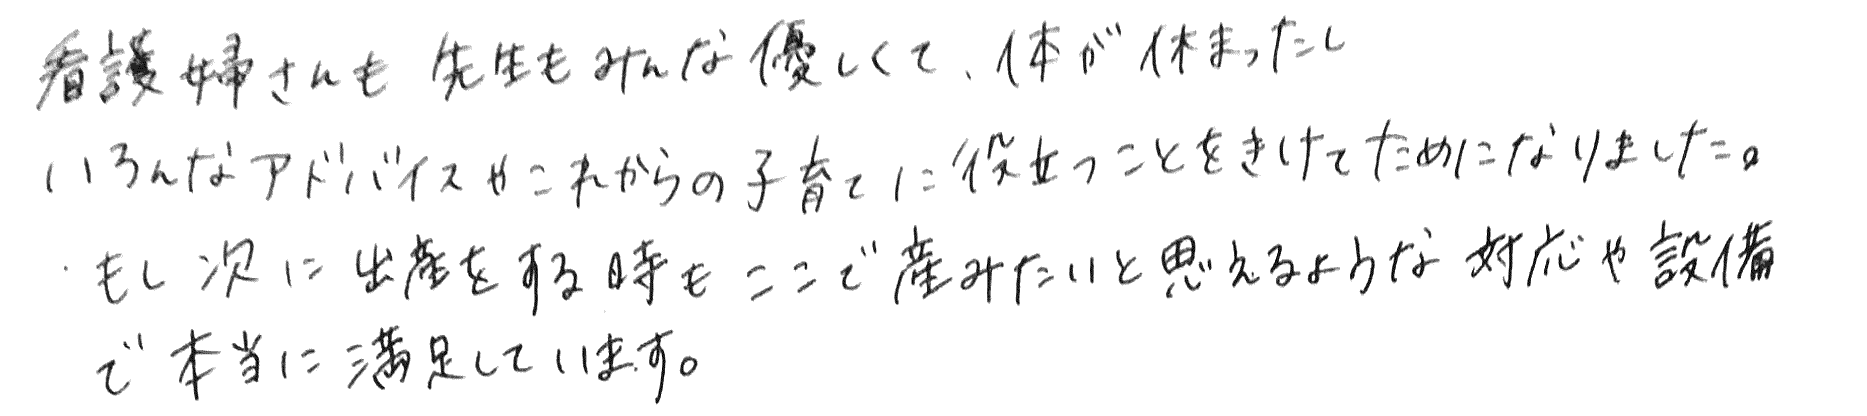 看護婦さんも先生もみんな優しくて、体が休まったし
いろんなアドバイスやこれからの子育てに役立つことをきけてためになりました。
もし次に出産をする時もここで産みたいと思えるような対応や設備
で本当に満足しています。